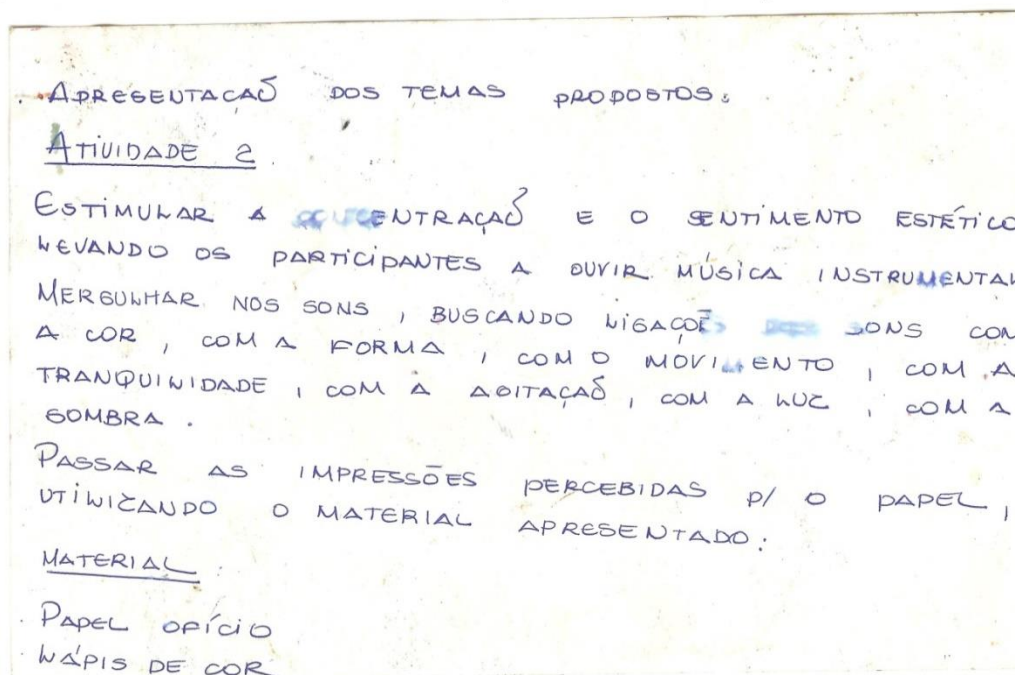 . APRESENTAÇAÕ DOS TEMAS PROPOSTOS.
ATIVIDADE 2
ESTIMULAR A CONCENTRAÇAÕ E O SENTIMENTO ESTÉTICO
LEVANDO OS PARTICIPANTES A OUVIR MÚSICA INSTRUMENTAL
MERGULHAR NOS SONS, BUSCANDO LIGAÇÕES SONS COM
A COR, COM A FORMA, COM O MOVIMENTO, COM A
TRANQUILIDADE, COM A AGITAÇAÕ, COM A LUZ, COM A
SOMBRA.
PASSAR AS IMPRESSÕES PERCEBIDAS P/ O PAPEL,
UTILIZANDO O MATERIAL APRESENTADO.
MATERIAL
. PAPEL OFÍCIO
. LÁPIS DE COR